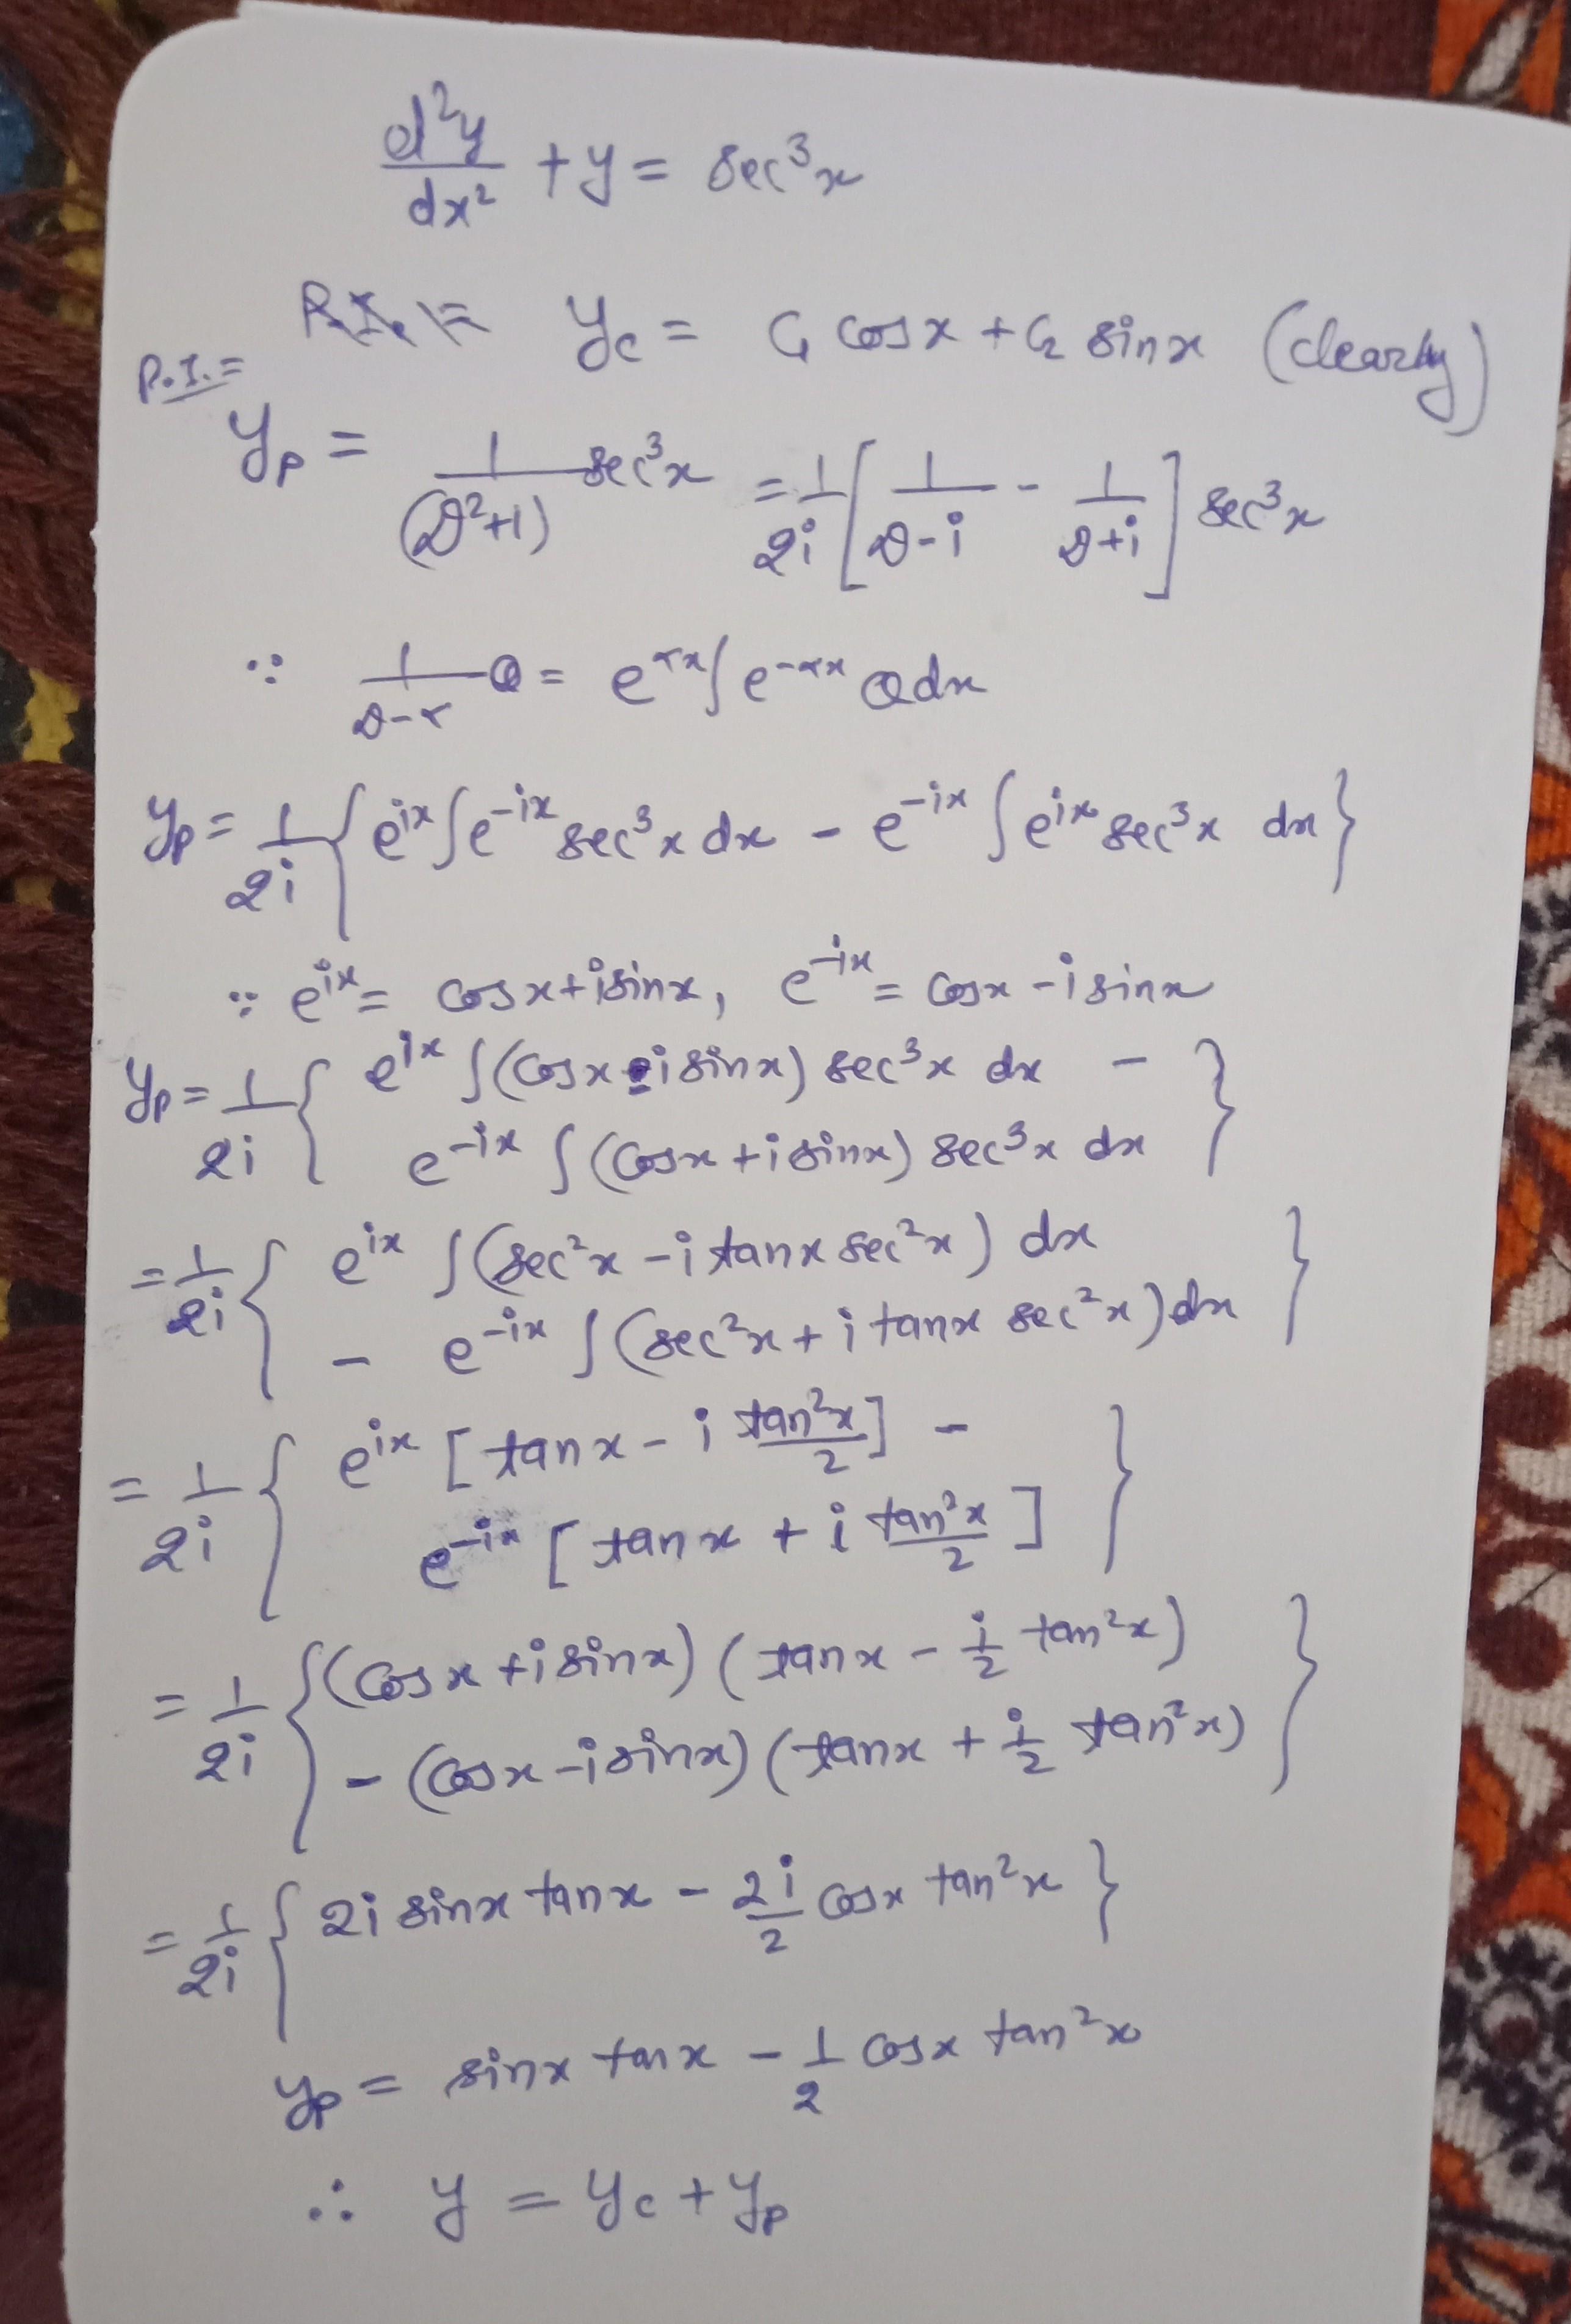 d²y/dx² + y = sec³x
y_c = C₁ cosx + C₂ sinx (clearly)
P.I. =
y_p = 1/(D²+1) sec³x = 1/2i [1/(D-i) - 1/(D+i)] sec³x
∵ 1/(D-α) Q = e^(αx) ∫ e^(-αx) Q dx
y_p = 1/2i { e^(ix) ∫ e^(-ix) sec³x dx - e^(-ix) ∫ e^(ix) sec³x dx }
∵ e^(ix) = cosx + i sinx, e^(-ix) = cosx - i sinx
y_p = 1/2i { e^(ix) ∫ (cosx - i sinx) sec³x dx -
e^(-ix) ∫ (cosx + i sinx) sec³x dx }
= 1/2i { e^(ix) ∫ (sec²x - i tanx sec²x) dx
- e^(-ix) ∫ (sec²x + i tanx sec²x) dx }
= 1/2i { e^(ix) [tanx - i tan²x/2] -
e^(-ix) [tanx + i tan²x/2] }
= 1/2i { (cosx + i sinx) (tanx - i/2 tan²x)
- (cosx - i sinx) (tanx + i/2 tan²x) }
= 1/2i { 2i sinx tanx - 2i/2 cosx tan²x }
y_p = sinx tanx - 1/2 cosx tan²x
∴ y = y_c + y_p